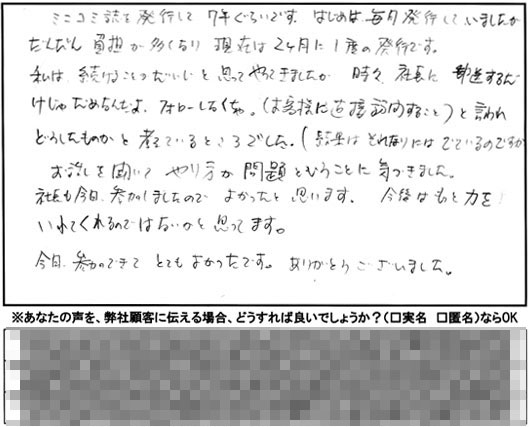 ミニコミ誌を発行して 7年ぐらいです。はじめは毎月発行していましたが
だんだん 負担が多くなり 現在は2ヶ月に1度の発行です。
私は、続けることがだいじと思ってやってきましたが 時々 社長に 郵送するだ
けじゃだめなんだよ、フォローしなくちゃ。(お客様に直接訪問すること)と言われ
どうしたものかと考えているところでした。(結果はそれなりにはでているのですが
お話しを聞いて やり方が問題ということに気づきました。
社長も今日、参加しましたので よかったと思います。 今後はもっと力を
いれてくれるのではないかと思ってます。
今日、参加できて とてもよかったです。 ありがとうございました。
※あなたの声を、弊社顧客に伝える場合、どうすれば良いでしょうか?(□実名 □匿名)ならOK